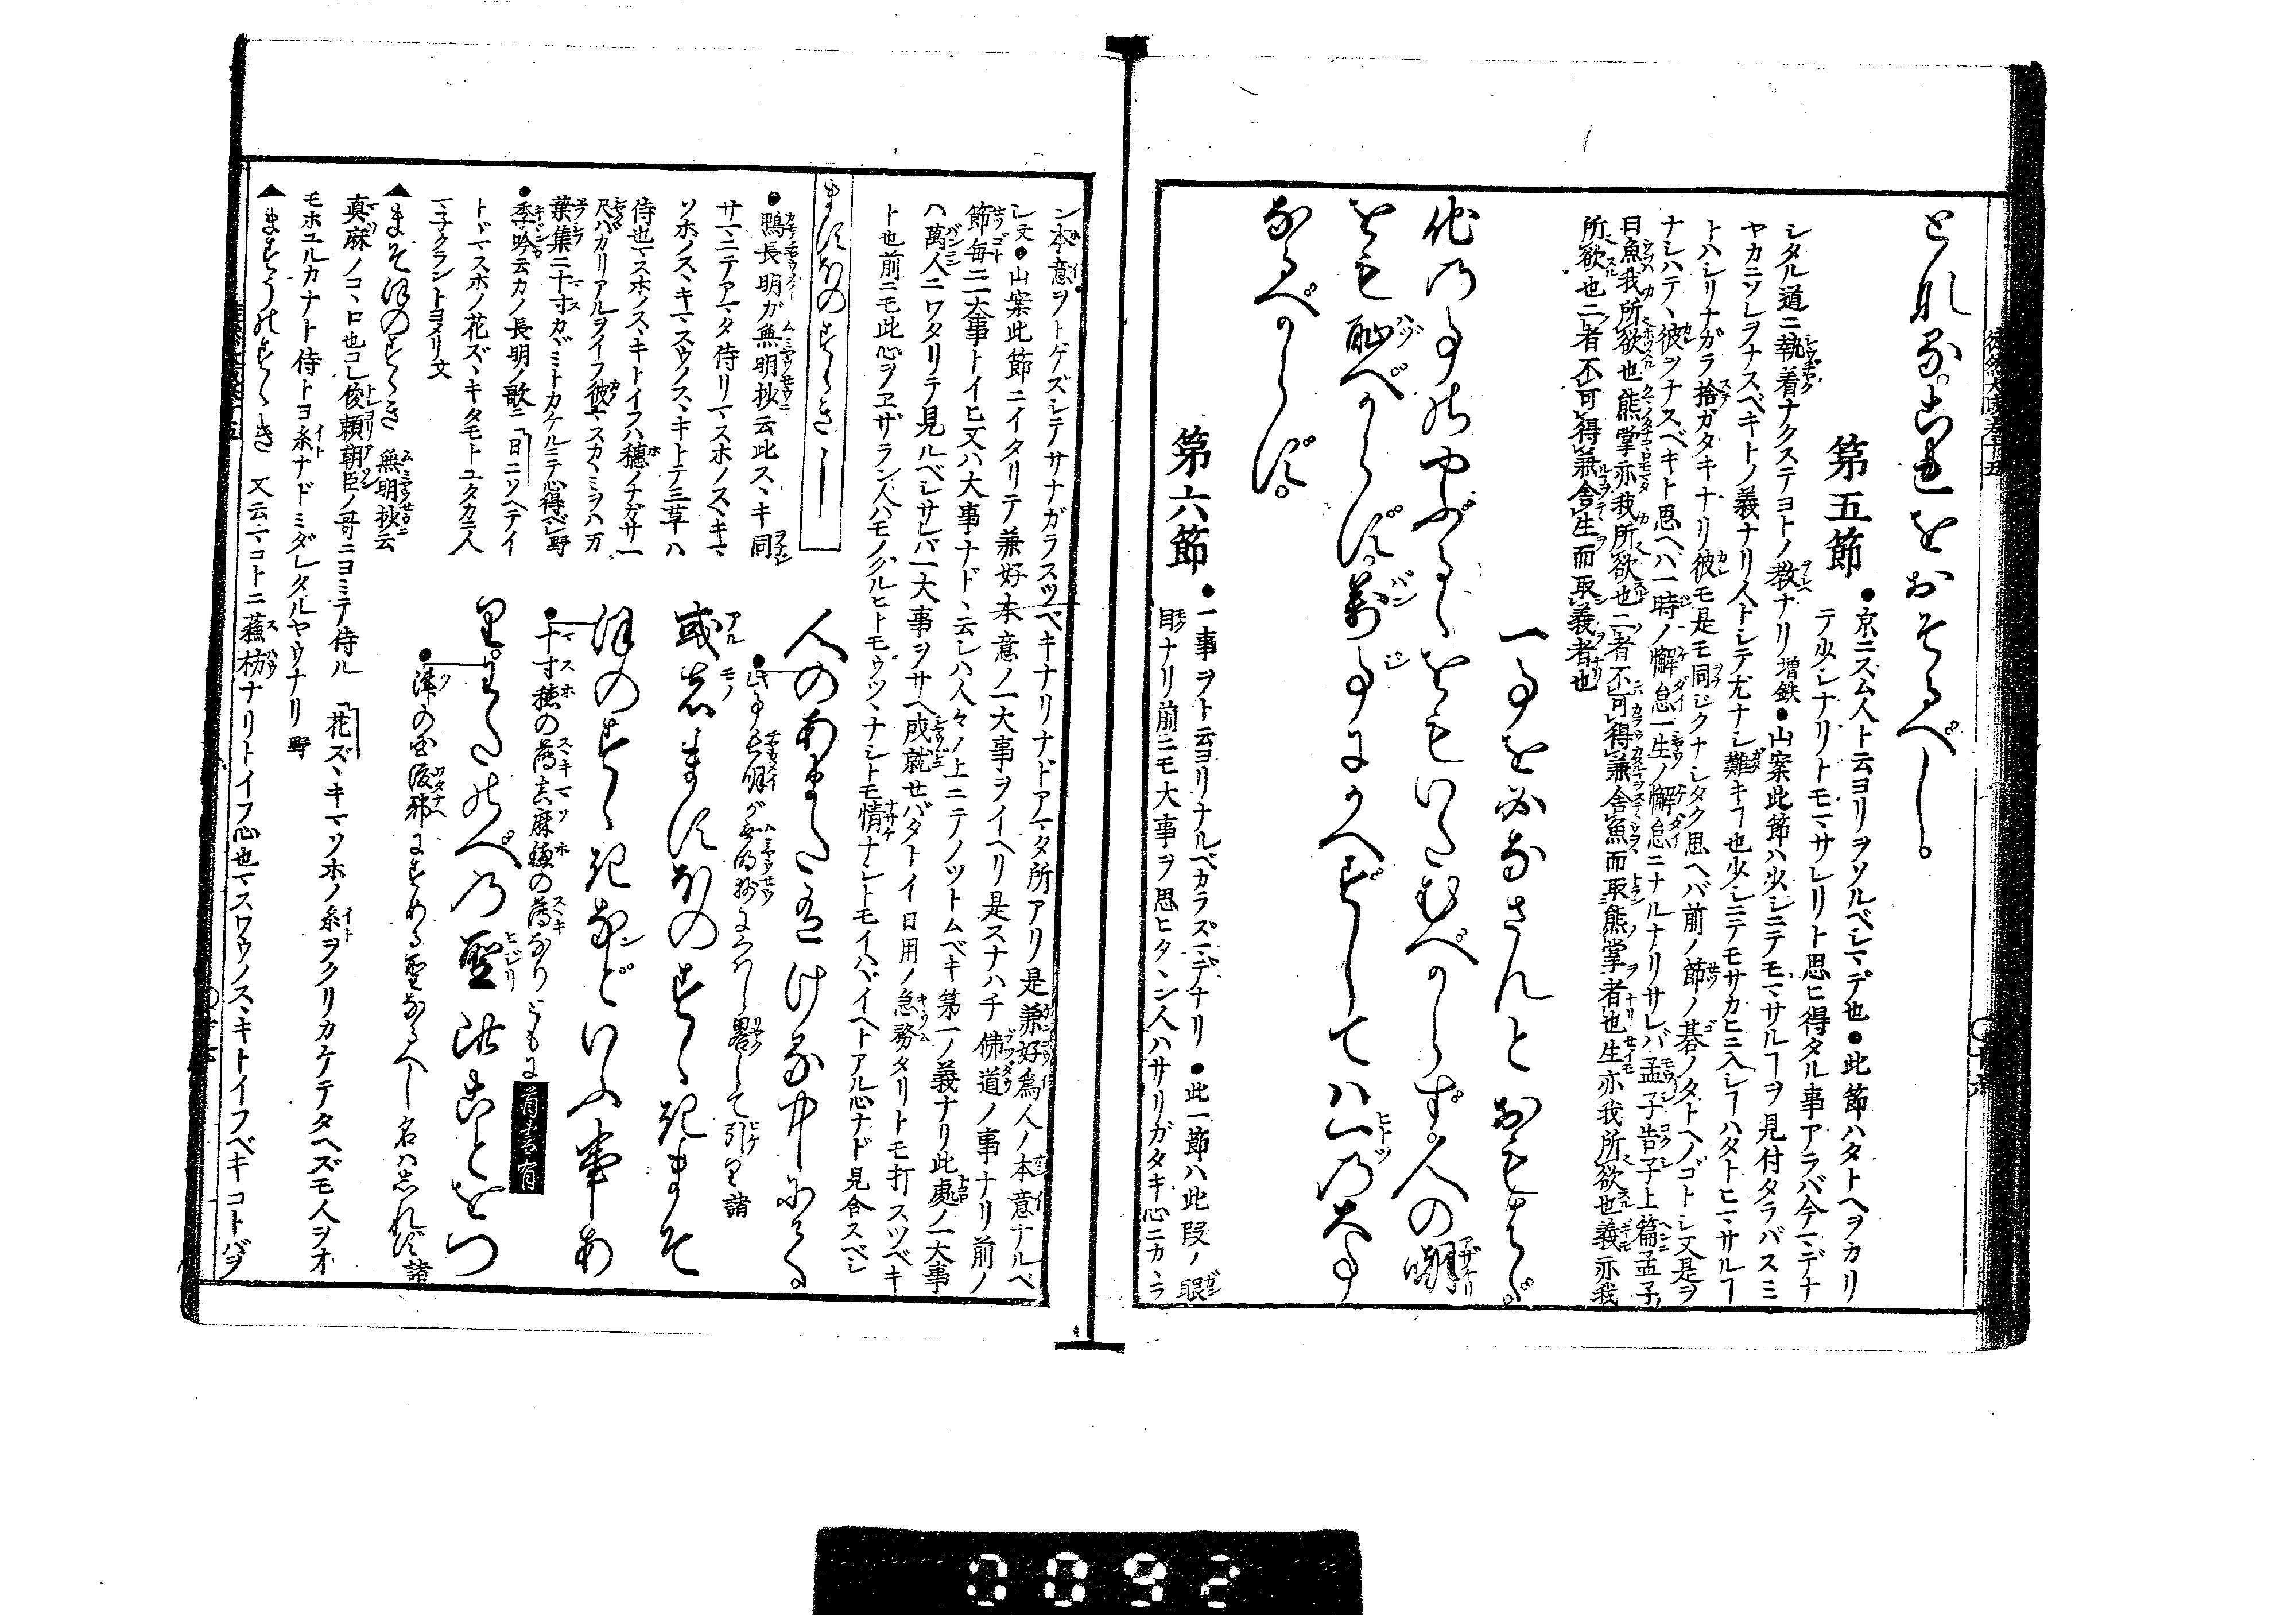 とれる。是をおそるべし。
第五節
●京ニスム人ト云ヨリヲソルベシマデ也●此節ハタトヘヲカリ
テ少シナリトモマサレリト思ヒ得タル事アラバ今マデナ
シタル道ニ執着ナクステヨトノ教ナリ増鉄●山案此節ハ少シニテモマサルヿヲ見付タラバスミ
ヤカニソレヲナスベキトノ義ナリ人トシテ尤ナシ難キヿ也少シニテモサカヒニ入レヿハタトヒマサルヿ
トハシリナガラ捨ガタキナリ彼モ是モ同ジクナシタク思ヘバ前ノ節ノ碁ノタトヘノゴトシ又是ヲ
ナシハテヽ彼ヲナスベキト思ヘハ一時ノ懈怠一生ノ懈怠ニナルナリサレバ孟子告子上篇孟子
曰魚我所欲也熊掌亦我所欲也二者不可得兼舎魚而取熊掌者也生亦我所欲也義亦我
所欲也二者不可得兼舎生而取義者也
一事を必なさんとおもはゞ。
他の事のやぶるゝをもいたむべからず。人の嘲
をも恥べからず。萬事にかへずしては一の大事
なるべからず。
第六節
●一事ヲト云ヨリナルベカラズマデナリ●此一節ハ此段ノ眼
目ナリ前ニモ大事ヲ思ヒタヽン人ハサリガタキ心ニカヽラ
ン本意ヲトゲズシテサナガラスツベキナリナドアマタ所アリ是兼好為人ノ本意ナルベ
シ文●山案此節ニイタリテ兼好本意ノ一大事ヲイヘリ是スナハチ佛道ノ事ナリ前ノ
節毎ニ一大事トイヒ又ハ大事ナドヽ云シハ人々ノ上ニテノツトムベキ第一ノ義ナリ此處ノ一大事
ハ萬人ニワタリテ見ルベシサレバ一大事ヲサヘ成就セバタトイ日用ノ急務タリトモ打スツベキ
ト也前ニモ此心ヲヱザラン人ハモノグルヒトモウツヽナシトモ情ナシトモイハヾイヘトアル心ナド見合スベシ
人のあまた有ける中にてある
●此事長明が無明抄にみへし畧して引り諸
或者ますほのすゝきまそ
ほのすゝきなどいふ事あ
●十寸穂の薄真麻穂の薄なりともに首書有
り。わたのべの聖此ことをつ
●津の国渡邊にすめる聖なるべし名ハしれず諸
ますほのすゝき―
●鴨長明が無明抄云此スヽキ同
サマニテアマタ侍リマスホノスヽキマ
ソホノスヽキマスウノスヽキトテ三草ハ
侍也マスホノスヽキトイフハ穂ノナガサ一
尺バカリアルヲイフ彼マスカヾミヲハ万
葉集ニ十寸カヾミトカケルニテ心得ベシ野
●季吟云カノ長明ノ歌ニ「日ニソヘテイ
トヾマスホノ花ズヽキタモトユタカニ人
マ子クラントヨメリ文
▲まそほのすゝき 無明抄云
真麻ノコヽロ也コレ俊頼朝臣ノ哥ニヨミテ侍ル「花ズヽキマソホノ糸ヲクリカケテタヘズモ人ヲ
モホユルカナト侍トヨ糸ナドミダレタルヤウナリ野
▲ますうのすゝき 又云マコトニ蘓枋ナリトイフ心也マスワウノスヽキトイフベキコトバヲ
0092